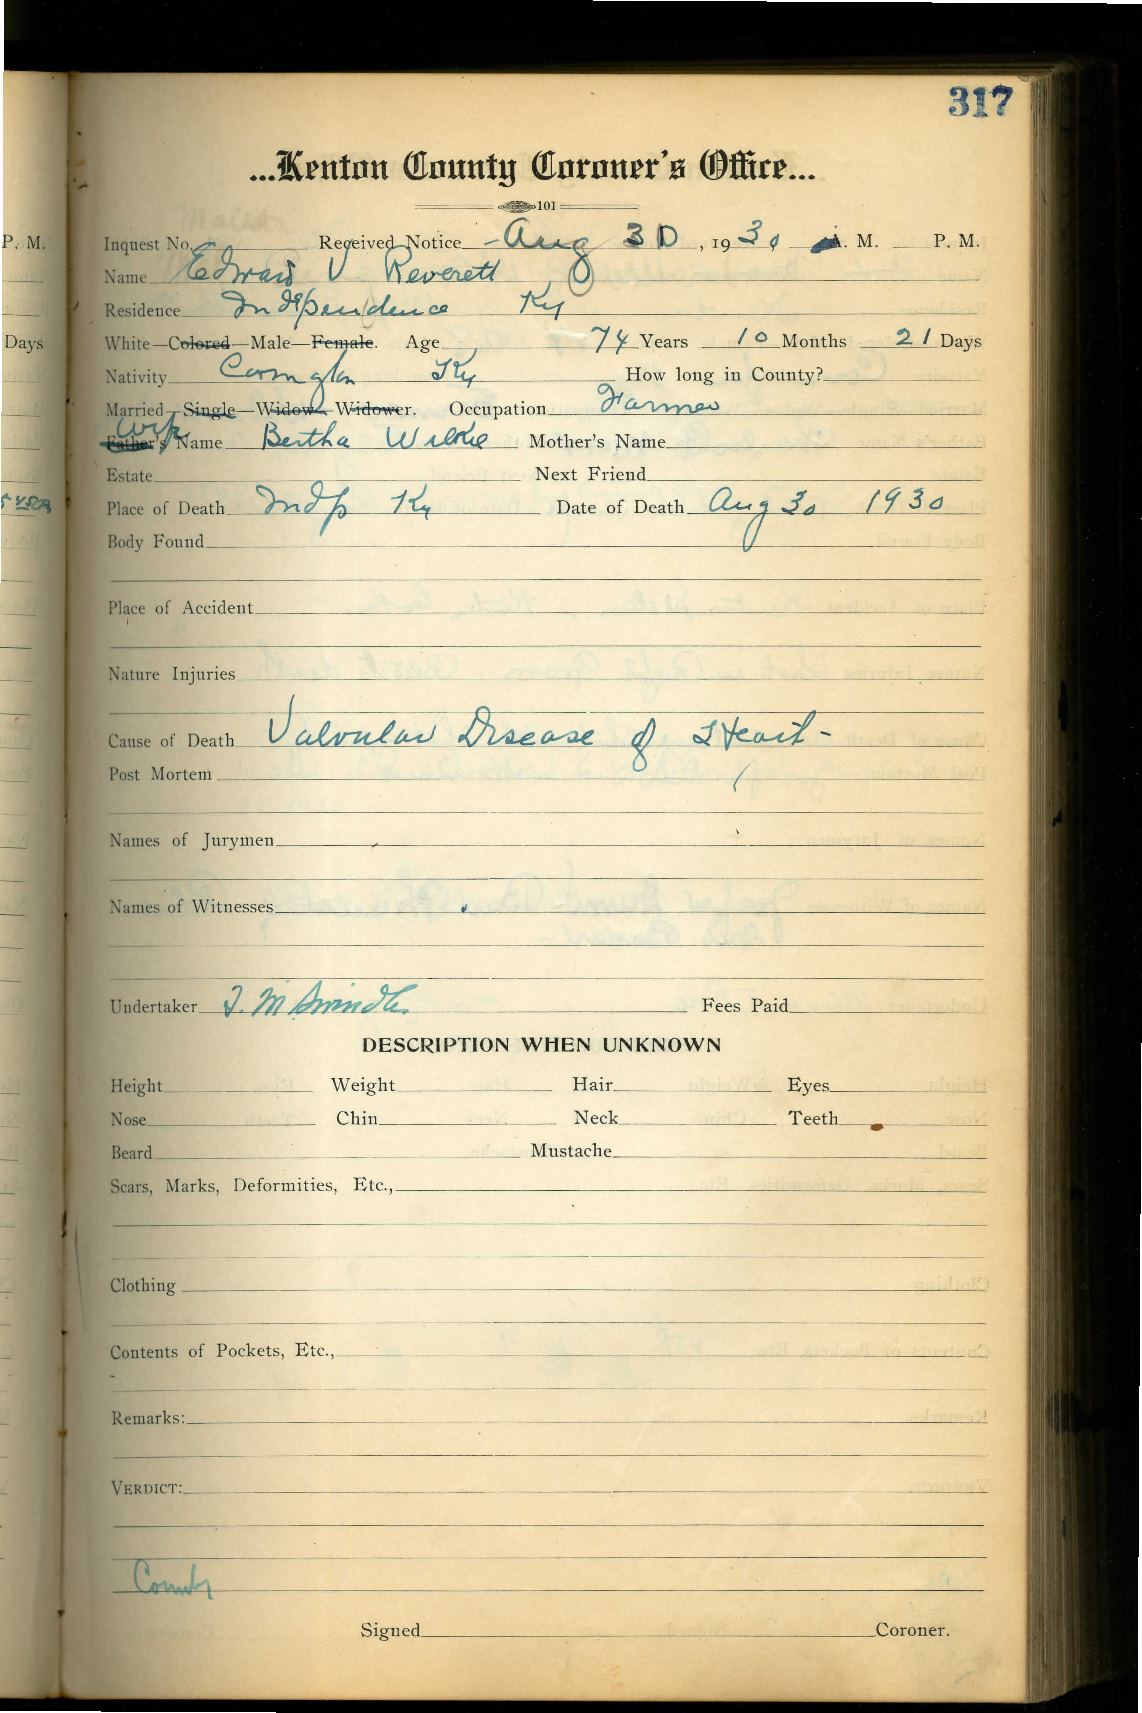 317
...Kenton County Coroner's Office...
101
P. M.
Inquest No. Received Notice - Aug 30, 1930 A. M. P. M.
Name Edward V Reverett
Residence Independence Ky
Days
White—Colored—Male—Female. Age 74 Years 10 Months 21 Days
Nativity Covington Ky How long in County?
Married—Single—Widow—Widower. Occupation Farmer
Wife
Father's Name Bertha Wilkie Mother's Name
Estate Next Friend
Place of Death Indp Ky Date of Death Aug 30 1930
Body Found
Place of Accident
Nature Injuries
Cause of Death Valvular Disease of Heart -
Post Mortem
Names of Jurymen
Names of Witnesses
Undertaker J. M Swindler Fees Paid
DESCRIPTION WHEN UNKNOWN
Height Weight Hair Eyes
Nose Chin Neck Teeth
Beard Mustache
Scars, Marks, Deformities, Etc.,
Clothing
Contents of Pockets, Etc.,
Remarks:
VERDICT:
County
Signed Coroner.